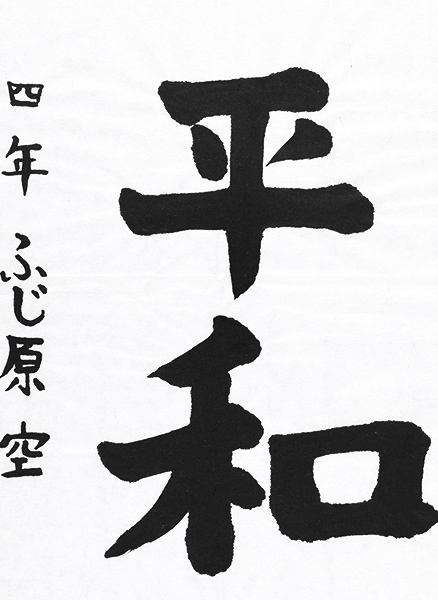 平和
四年 ふじ原 空